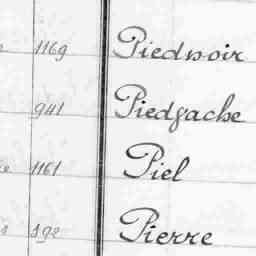 1169 Piednoir
941 Piedfache
1161 Piel
192 Pierre